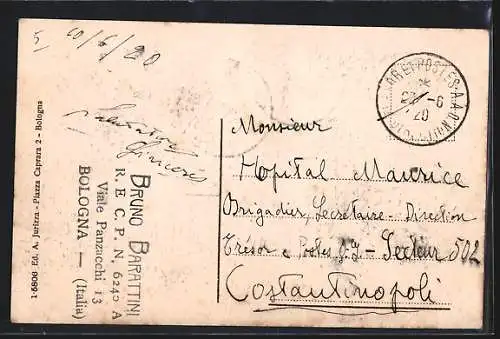 5
10/6/20
Salutations
sincères
BRUNO BARATTINI
R. E. C. P. N. 6240 A
Viale Panzacchi 13
BOLOGNA — (Italia)
1-6808 Ed. A. Juriza - Piazza Caprara 2 - Bologna
TRÉSOR ET POSTES
-6
20
Monsieur
Hopital Maurice
Brigadier, Secretaire - Direction
Tresor e Postes - Secteur 502
Costantinopoli